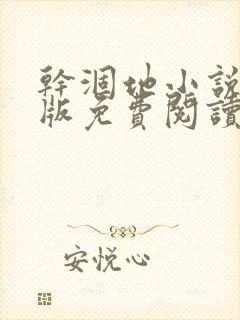 幹涸地小説
版免費閱讀
安悦心